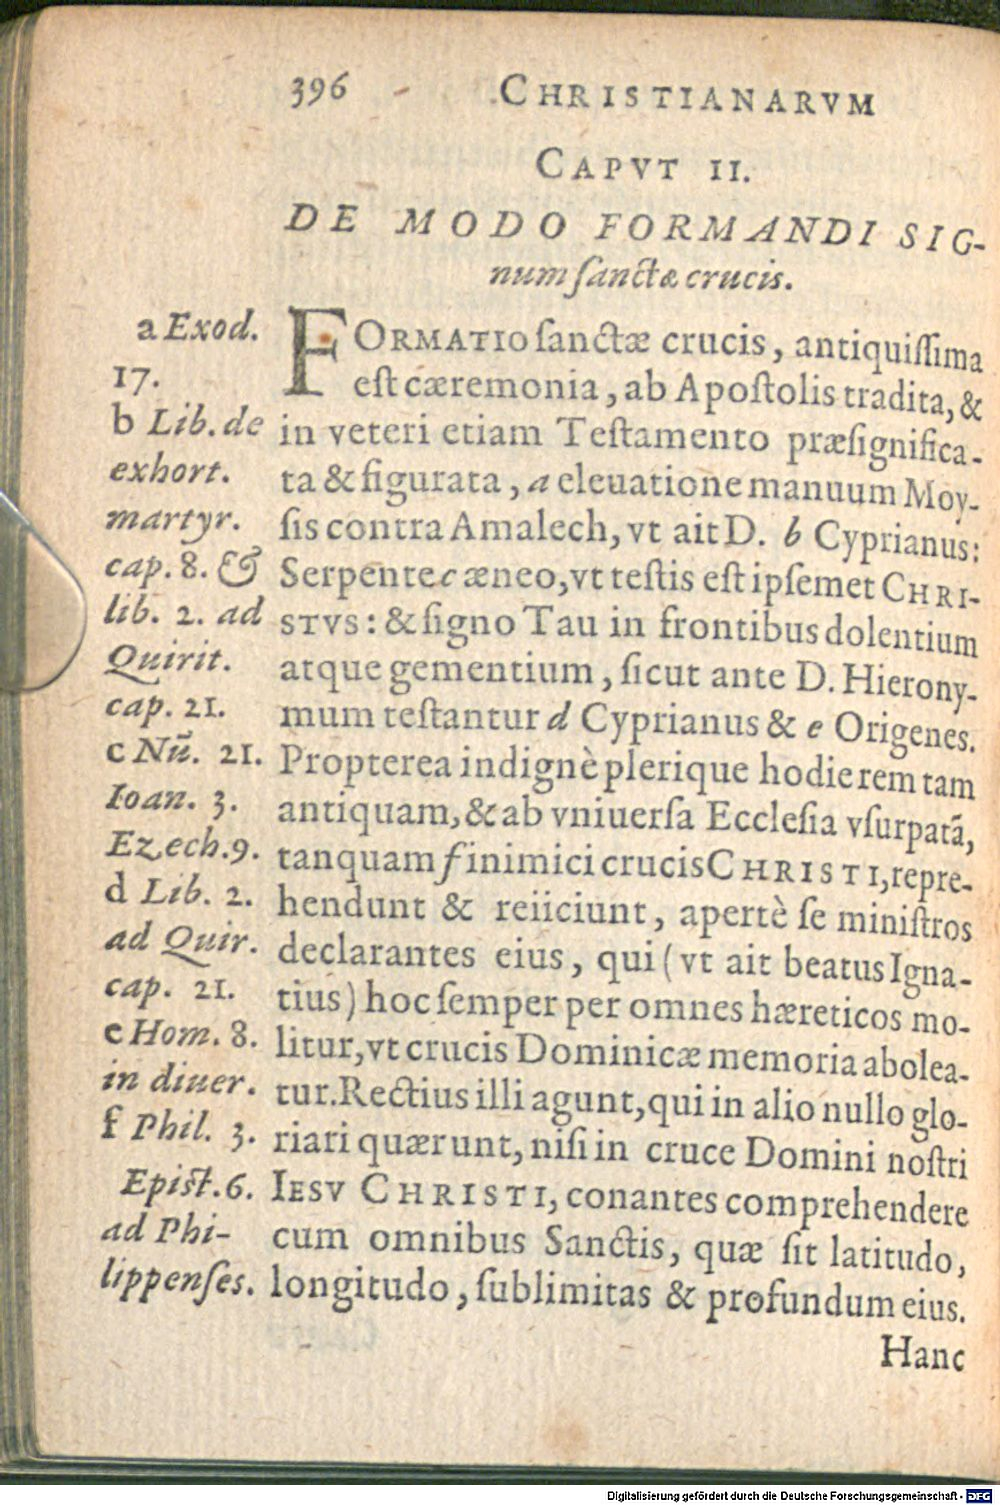 396 CHRISTIANARVM
CAPVT II.
DE MODO FORMANDI SIG-
num sanctæ crucis.
a Exod.
17.
b Lib. de
exhort.
martyr.
cap. 8. &
lib. 2. ad
Quirit.
cap. 21.
c Nũ. 21.
Ioan. 3.
Ezech. 9.
d Lib. 2.
ad Quir.
cap. 21.
e Hom. 8.
in diuer.
f Phil. 3.
Epist. 6.
ad Phi-
lippenses.
FORMATIO ſanctæ crucis, antiquiſſima
eſt cæremonia, ab Apoſtolis tradita, &
in veteri etiam Teſtamento præſignifica-
ta & figurata, a eleuatione manuum Moy-
ſis contra Amalech, vt ait D. b Cyprianus:
Serpente c æneo, vt teſtis eſt ipſemet CHRI-
STVS: & ſigno Tau in frontibus dolentium
atque gementium, ſicut ante D. Hierony-
mum teſtantur d Cyprianus & e Origenes.
Propterea indignè plerique hodie rem tam
antiquam, & ab vniuerſa Eccleſia vſurpatã,
tanquam f inimici crucis CHRISTI, repre-
hendunt & reiiciunt, apertè ſe miniſtros
declarantes eius, qui (vt ait beatus Igna-
tius) hoc ſemper per omnes hæreticos mo-
litur, vt crucis Dominicæ memoria abolea-
tur. Rectius illi agunt, qui in alio nullo glo-
riari quærunt, niſi in cruce Domini noſtri
IESV CHRISTI, conantes comprehendere
cum omnibus Sanctis, quæ ſit latitudo,
longitudo, ſublimitas & profundum eius.
Hanc
Digitalisierung gefördert durch die Deutsche Forschungsgemeinschaft - DFG